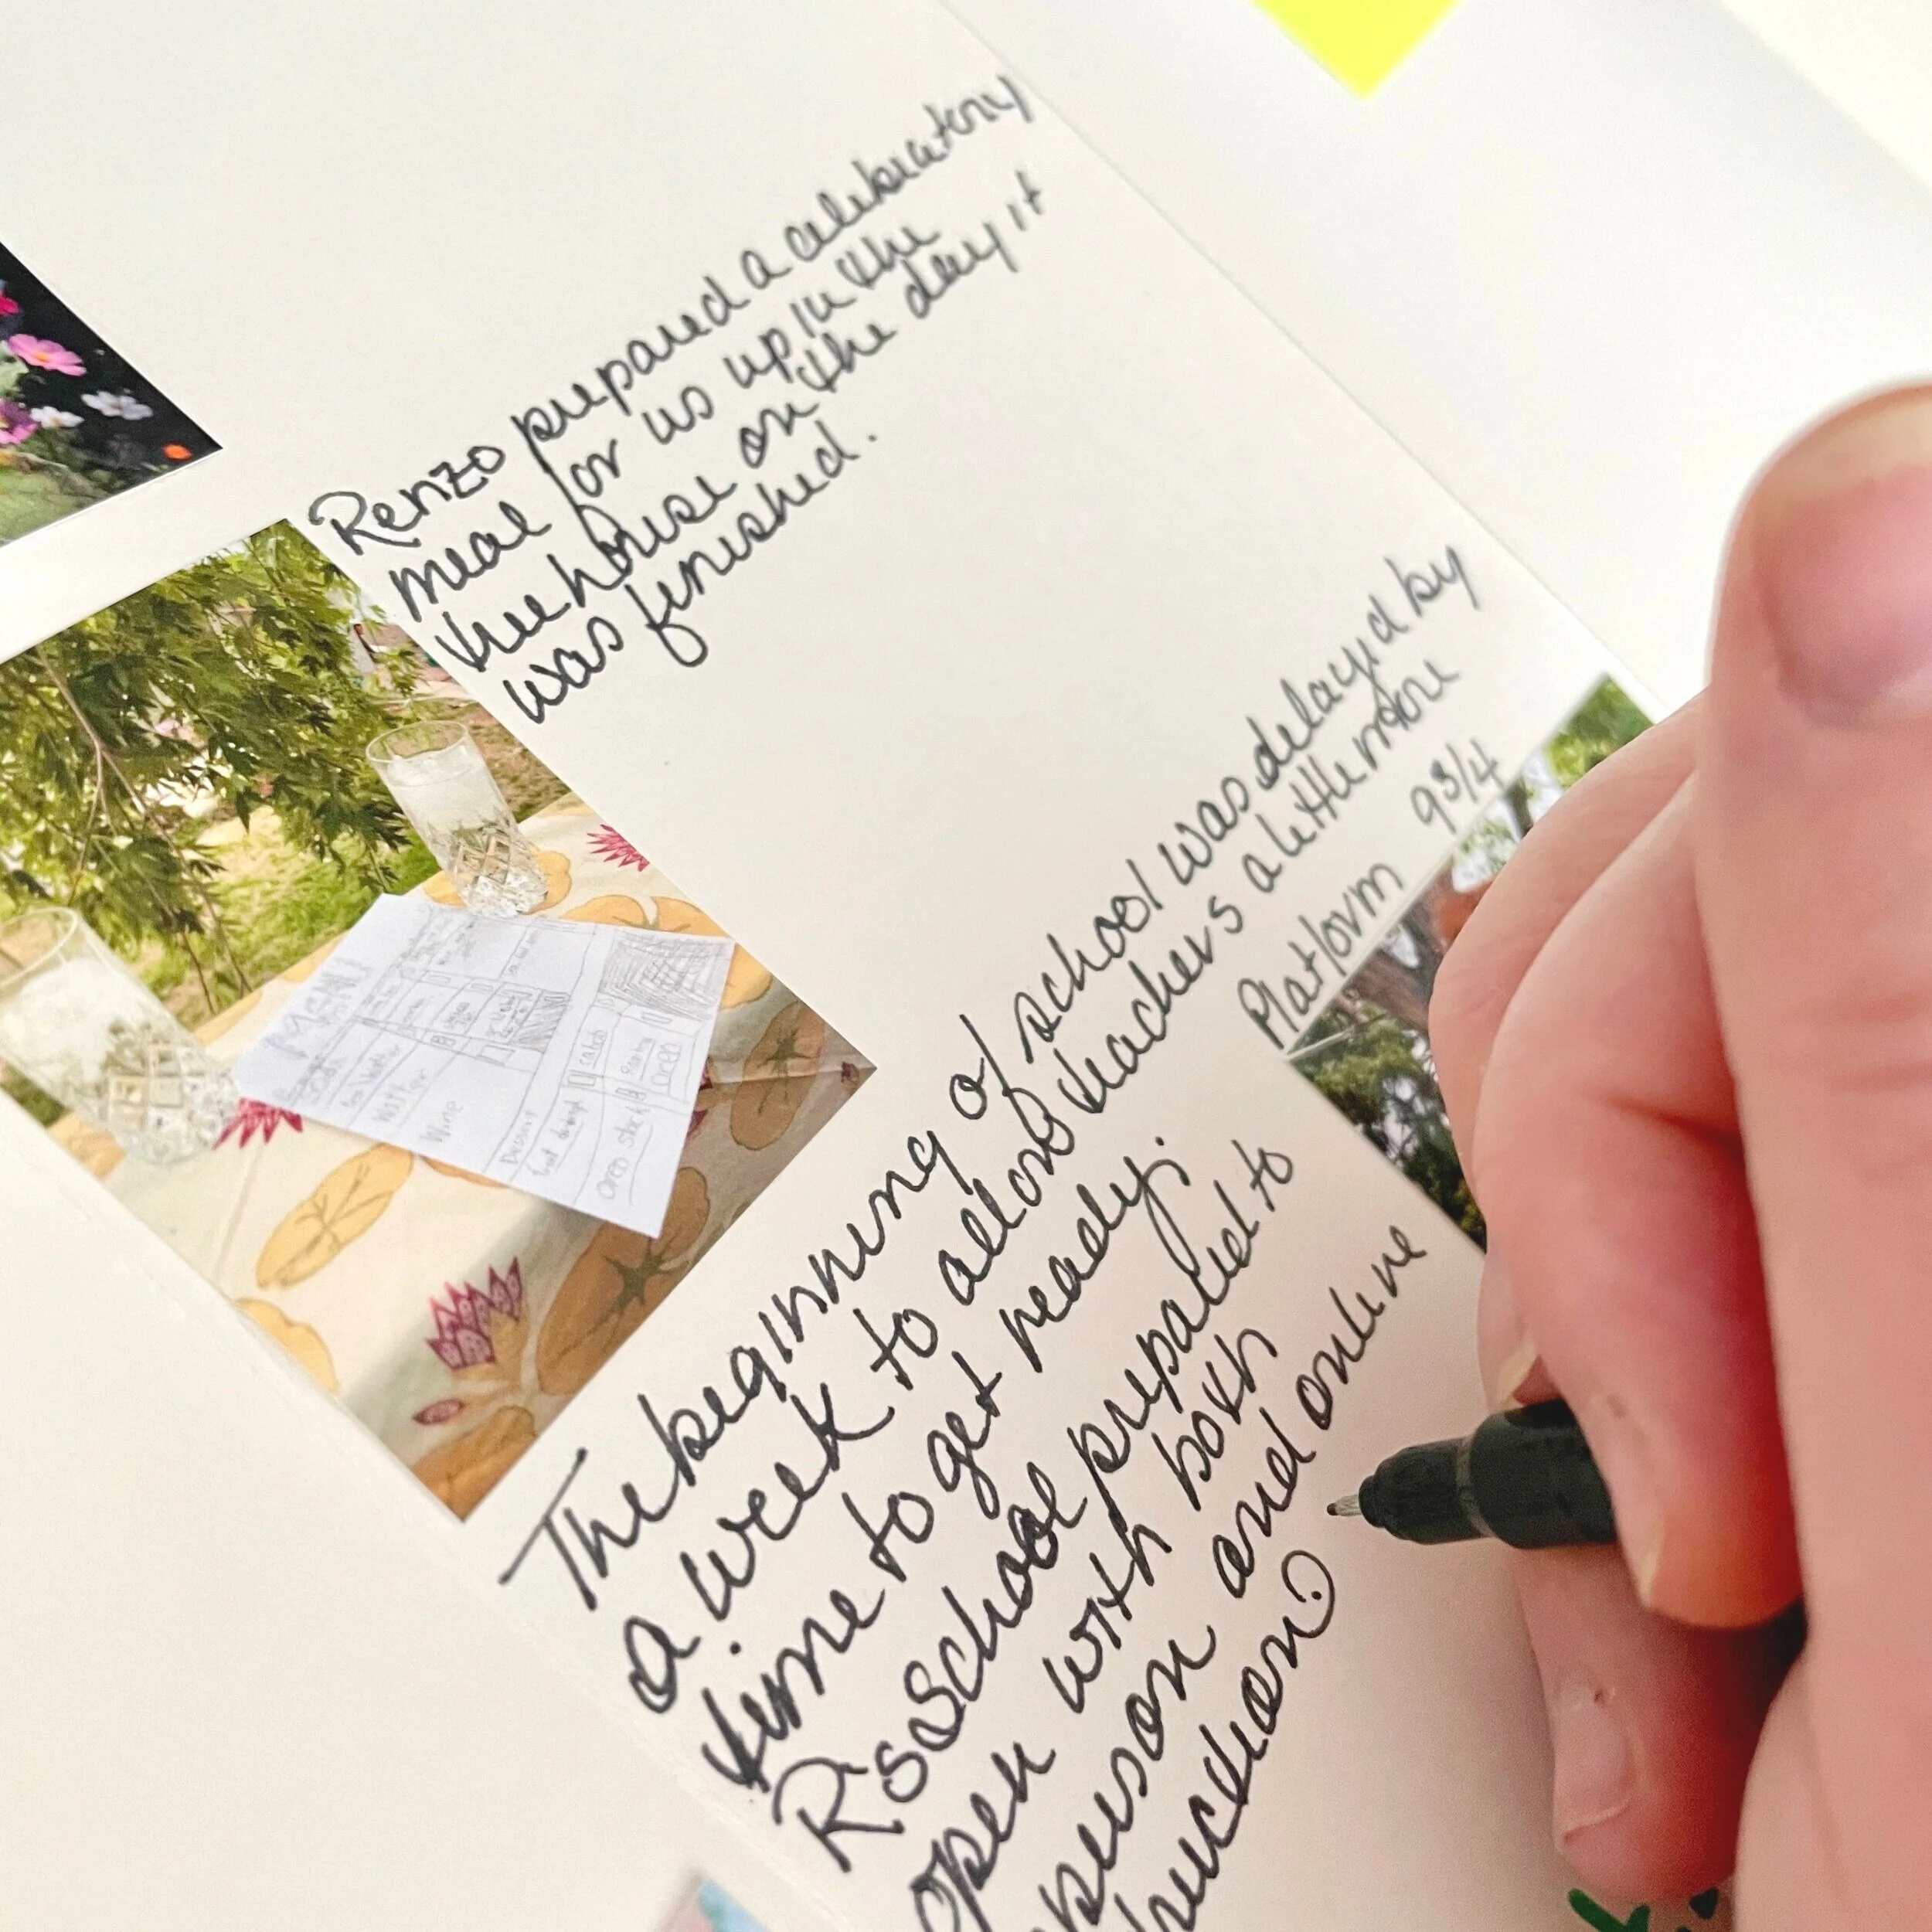 Renzo prepared a celebratory
meal for us up in the
treehouse on the day it
was finished.
The beginning of school was delayed by
a week to allow teachers a little more
time to get ready.
R's School prepared to
open with both
person and online
Platform 9 3/4
MENU
Water
Wine
Dessert